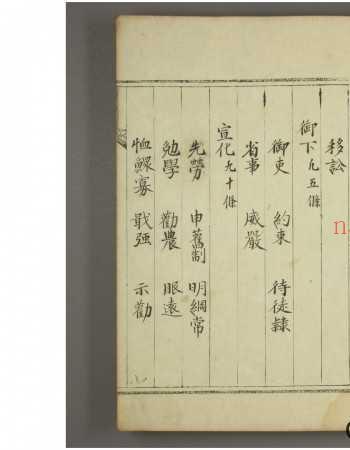 移訟
御下 凡五條
御吏 約束 待徒隸
省事 威嚴
宣化 凡十條
先勞 申舊制 明綱常
勉學 勸農 服遠
恤鰥寡 戢强 示勸